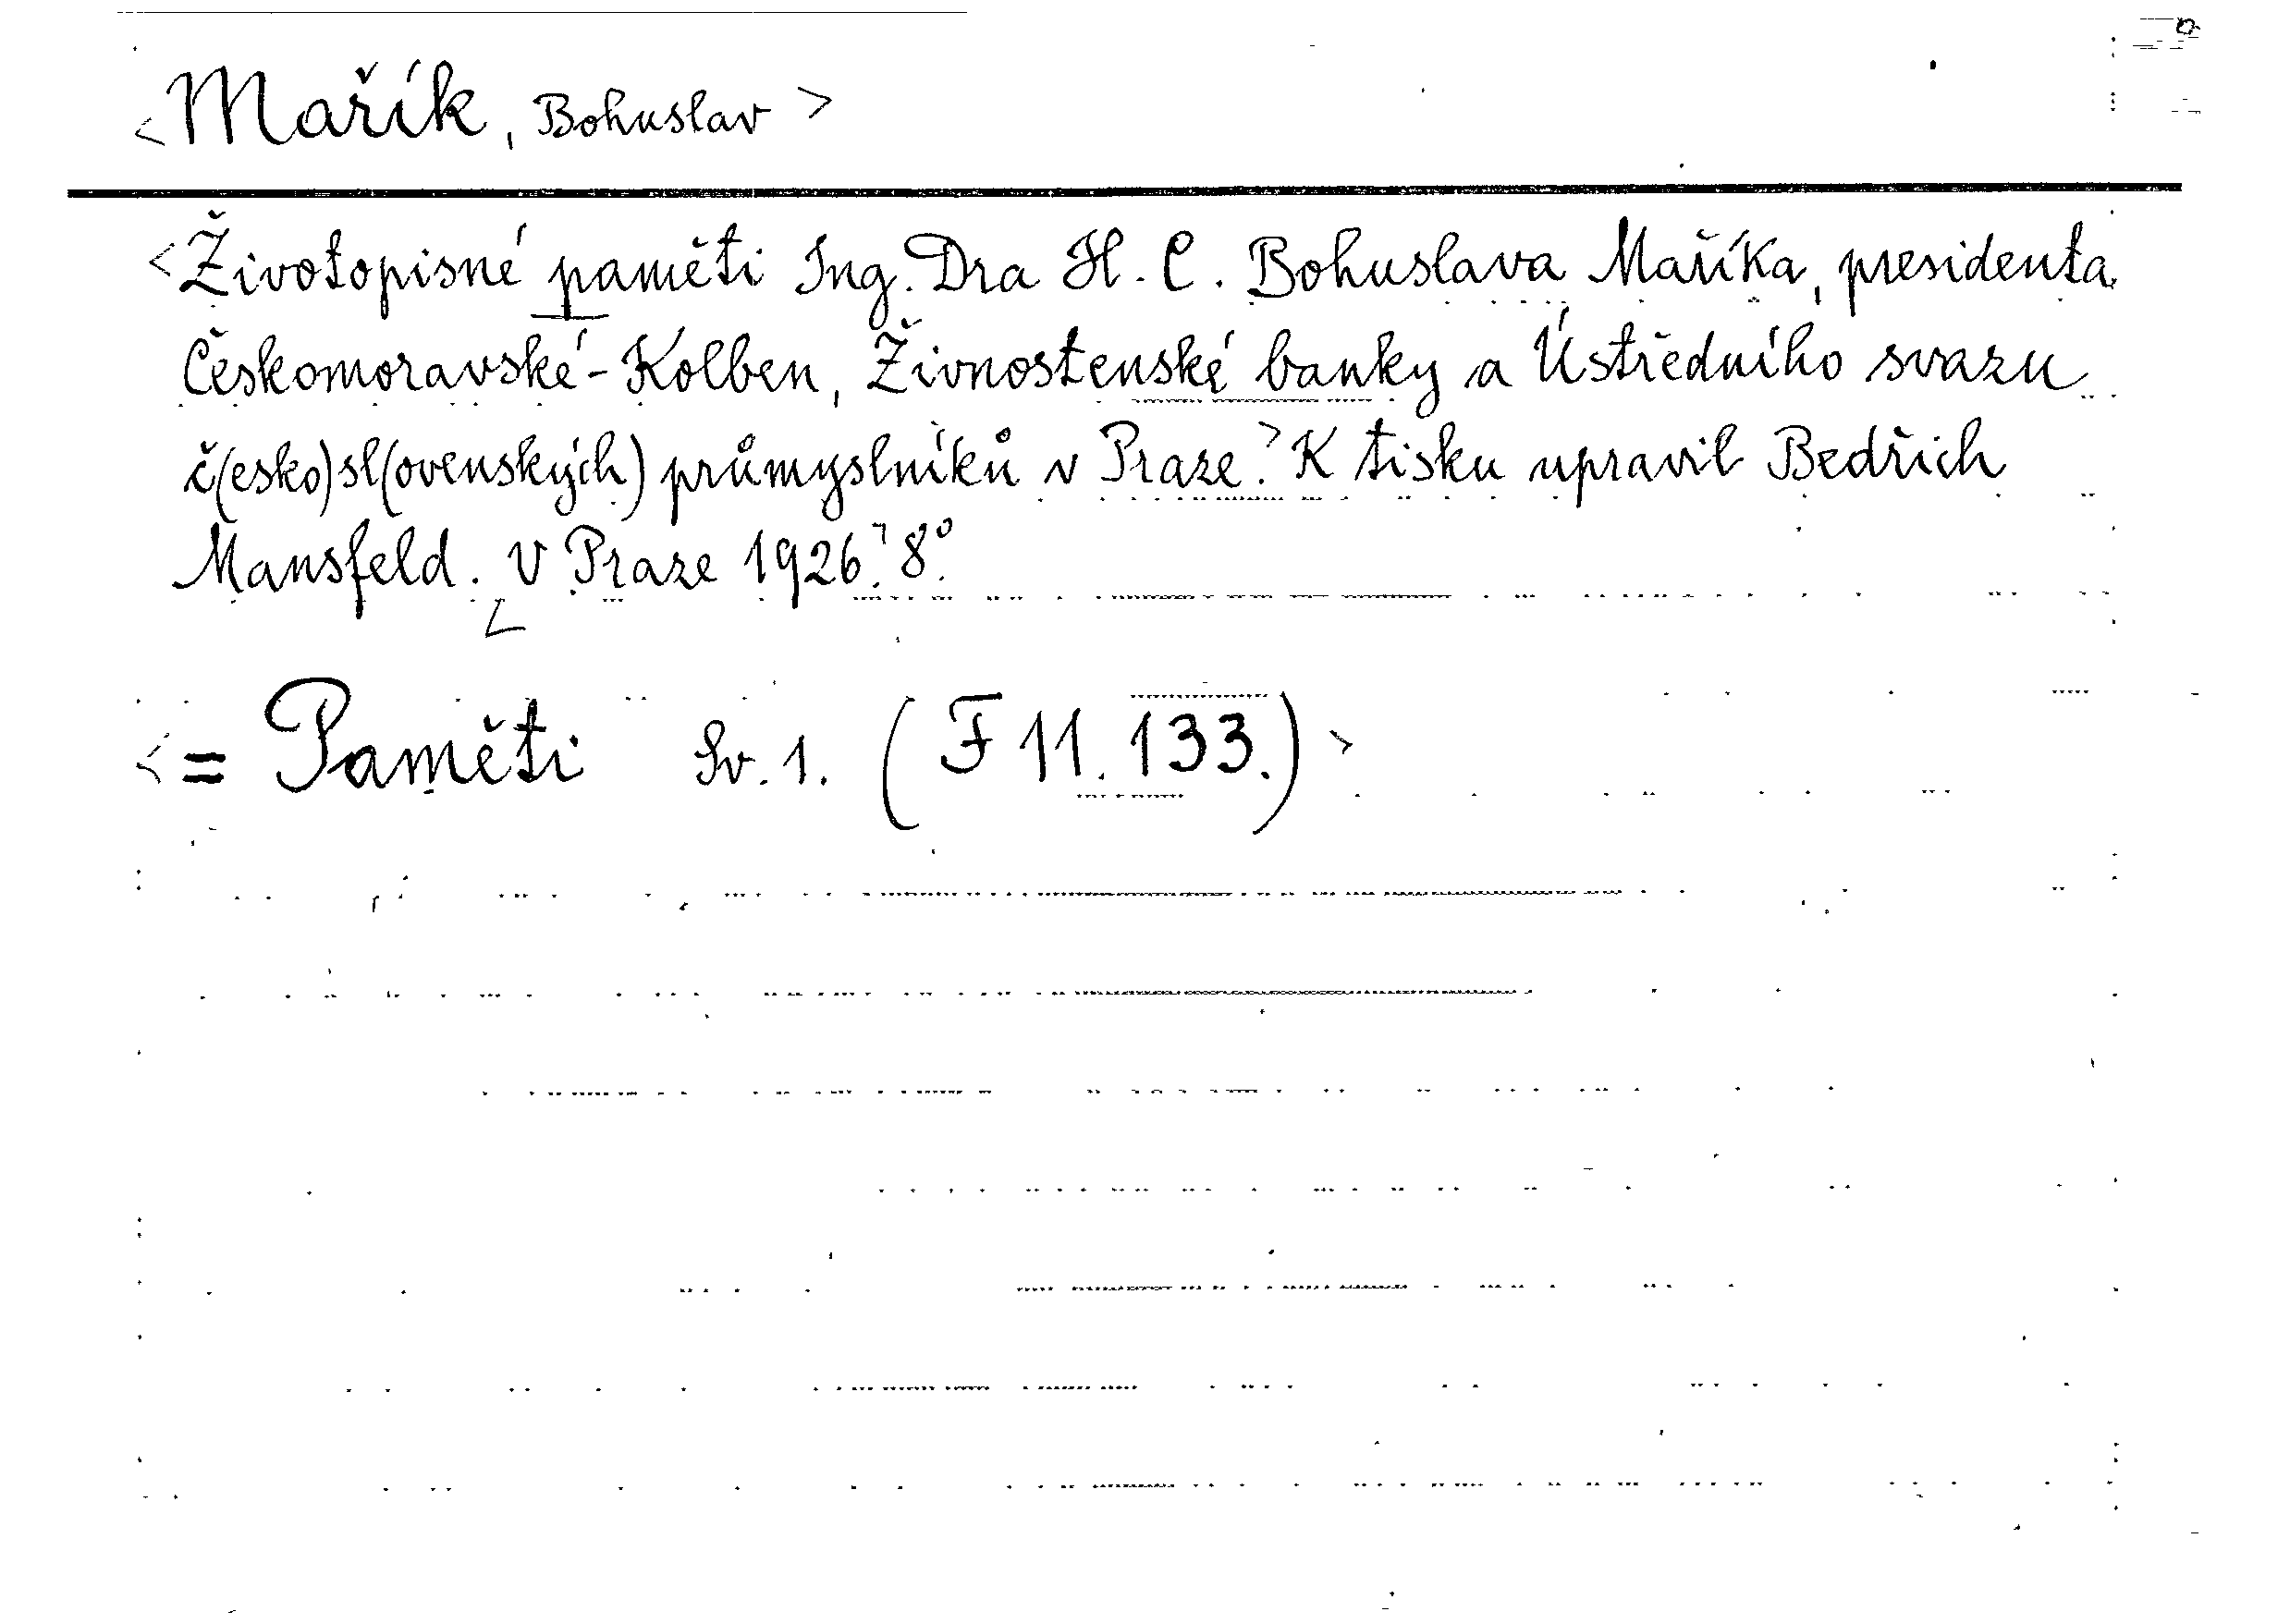 <Mařík, Bohuslav>
<Životopisné paměti Ing. Dra H. C. Bohuslava Maříka, presidenta
Českomoravské-Kolben, Živnostenské banky a Ústředního svazu
č(esko)sl(ovenských) průmyslníků v Praze.> K tisku upravil Bedřich
Mansfeld. V Praze 1926. 8°.
<= Paměti Sv. 1. (F 11. 133.)>